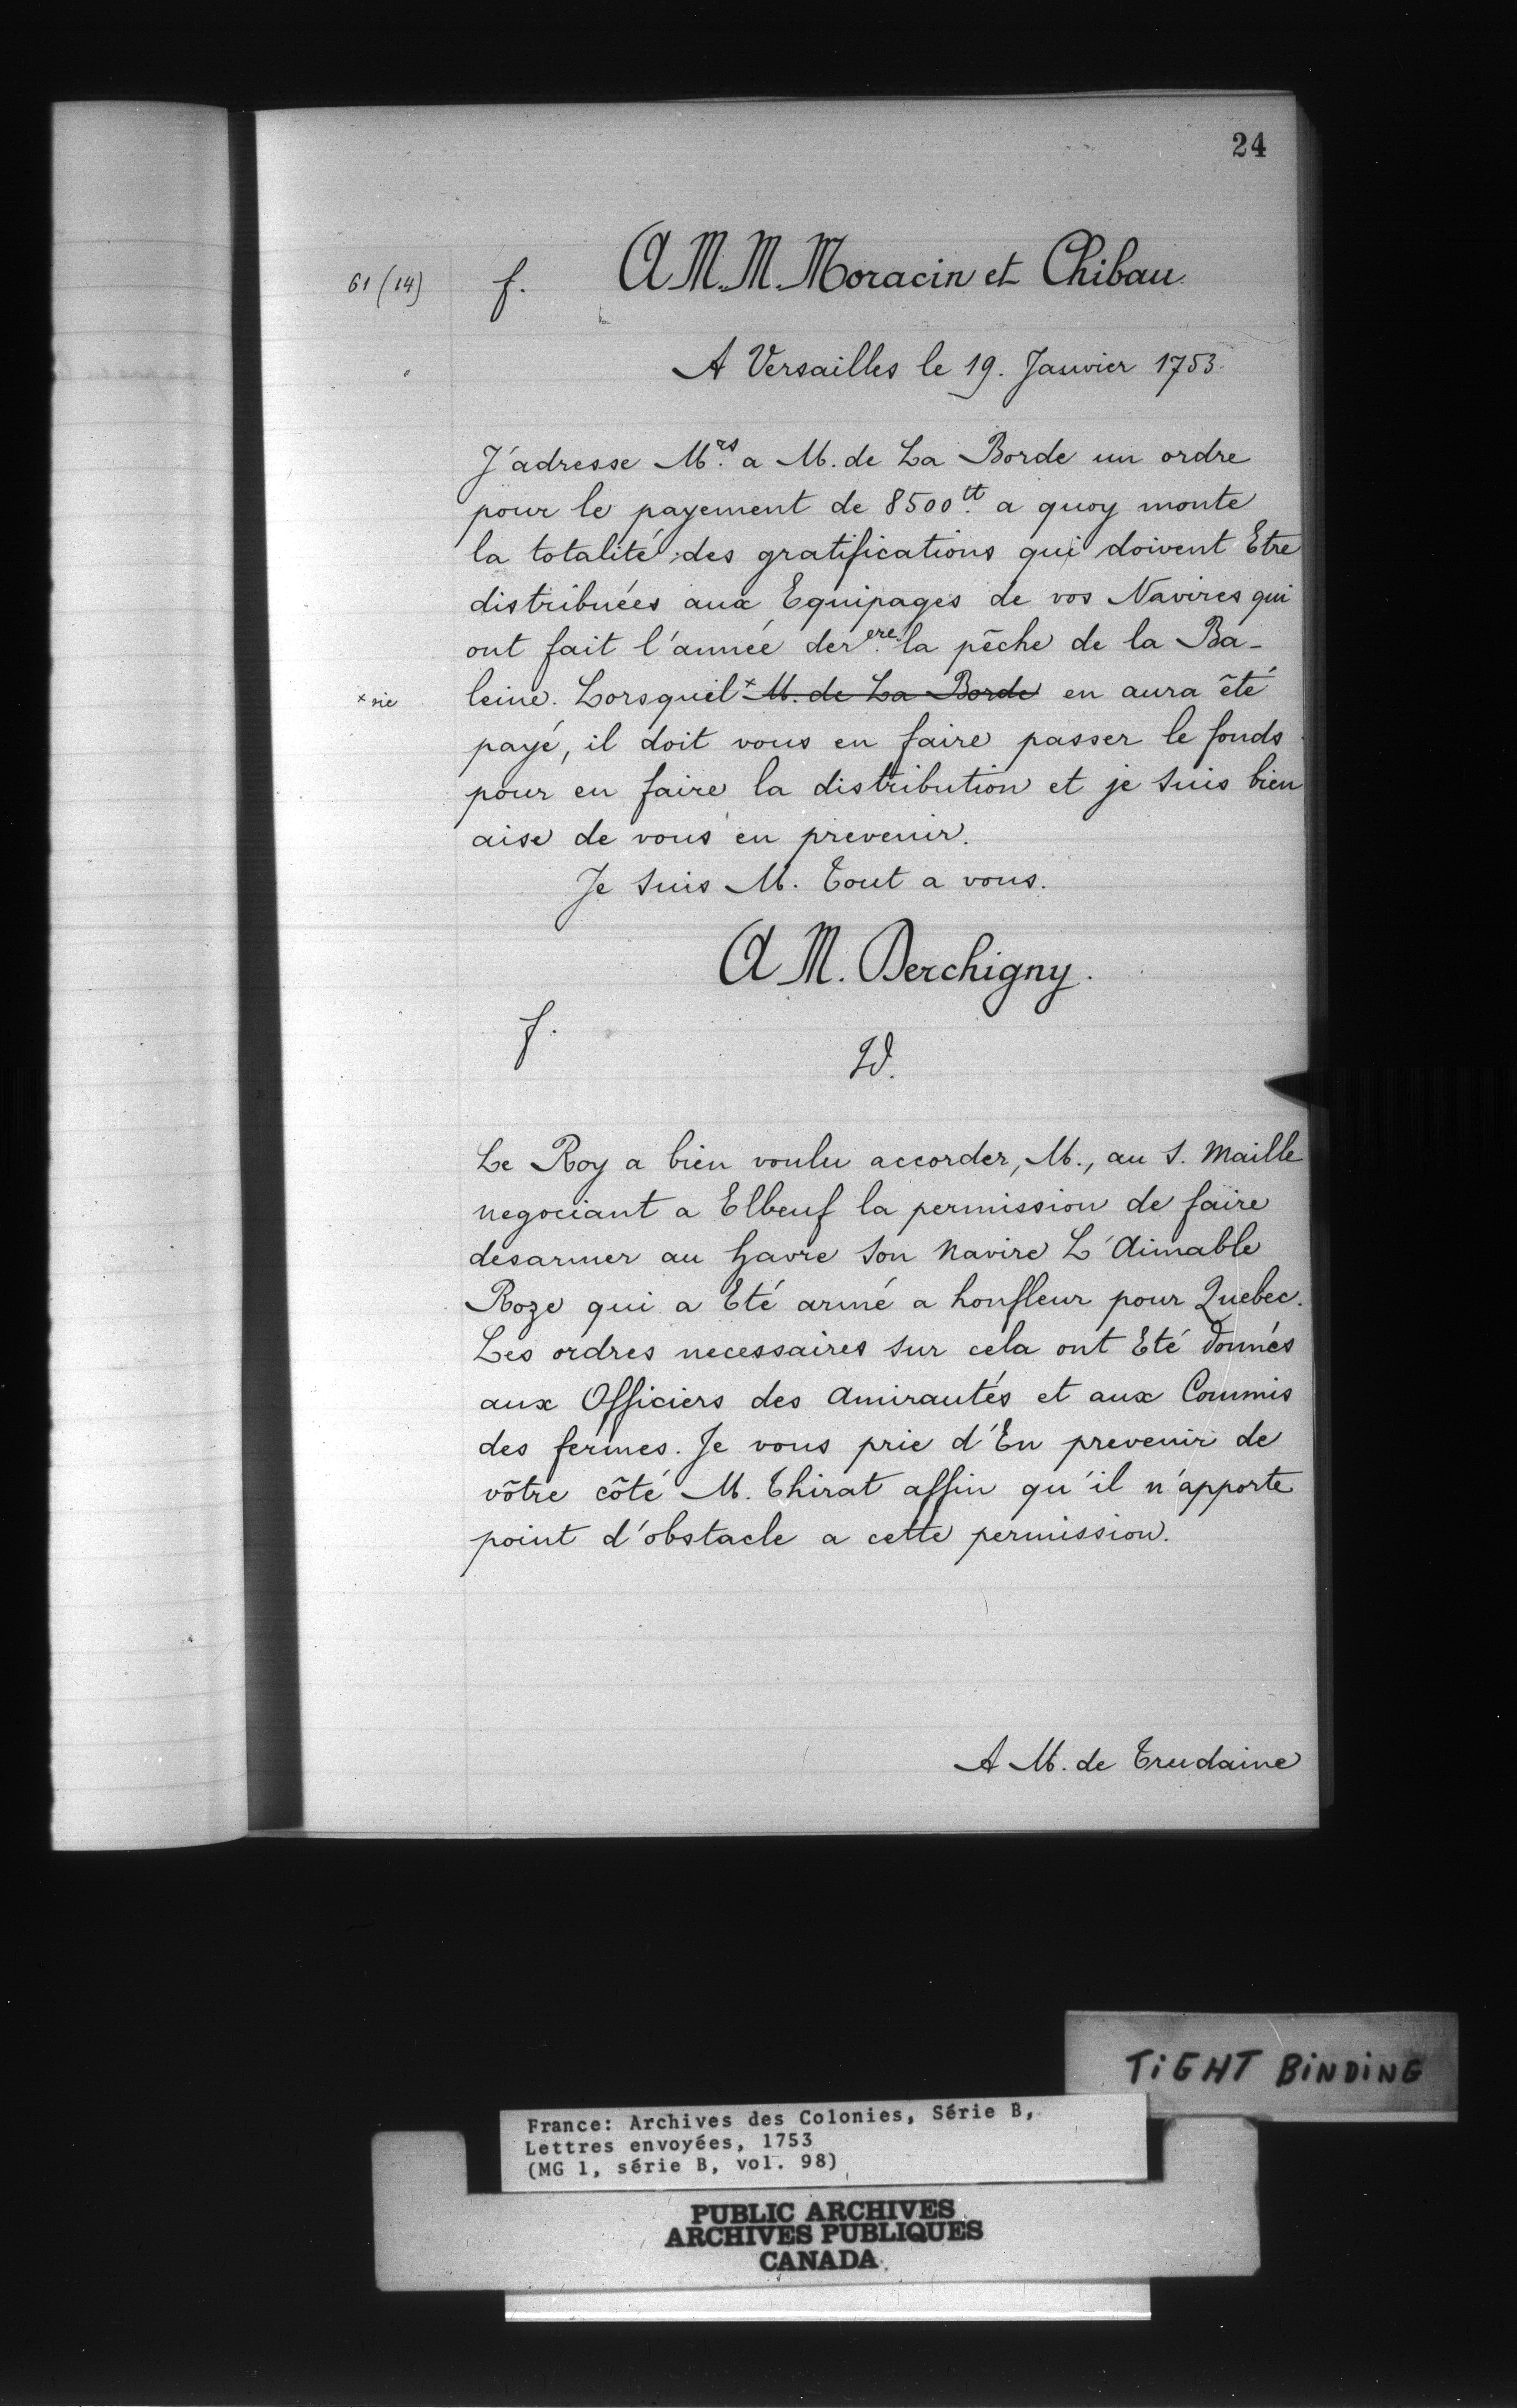 24
61 (14) f. A M.M. Moracin et Chibau
A Versailles le 19. Janvier 1753.
J'adresse Mrs. a M. de La Borde un ordre
pour le payement de 8500tt. a quoy monte
la totalité des gratifications qui doivent Etre
distribuées aux Equipages de vos Navires qui
ont fait l'année derere. la pêche de la Ba-
x sic leine. Lorsquil x M. de La Borde en aura êté
payé, il doit vous en faire passer le fonds
pour en faire la distribution et je suis bien
aise de vous en prevenir.
Je suis M. Tout a vous.
A M. Berchigny.
f.
Id.
Le Roy a bien voulu accorder, M., au S. Maille
negociant a Elbeuf la permission de faire
desarmer au havre son navire L'Aimable
Roze qui a Eté armé a honfleur pour Quebec.
Les ordres necessaires sur cela ont Eté donnés
aux Officiers des Amirautés et aux Commis
des fermes. Je vous prie d'En prevenir de
vôtre côté M. Thirat affin qu'il n'apporte
point d'obstacle a cette permission.
A M. de Trudaine
TiGHT BiNDiNG
France: Archives des Colonies, Série B,
Lettres envoyées, 1753
(MG 1, série B, vol. 98)
PUBLIC ARCHIVES
ARCHIVES PUBLIQUES
CANADA